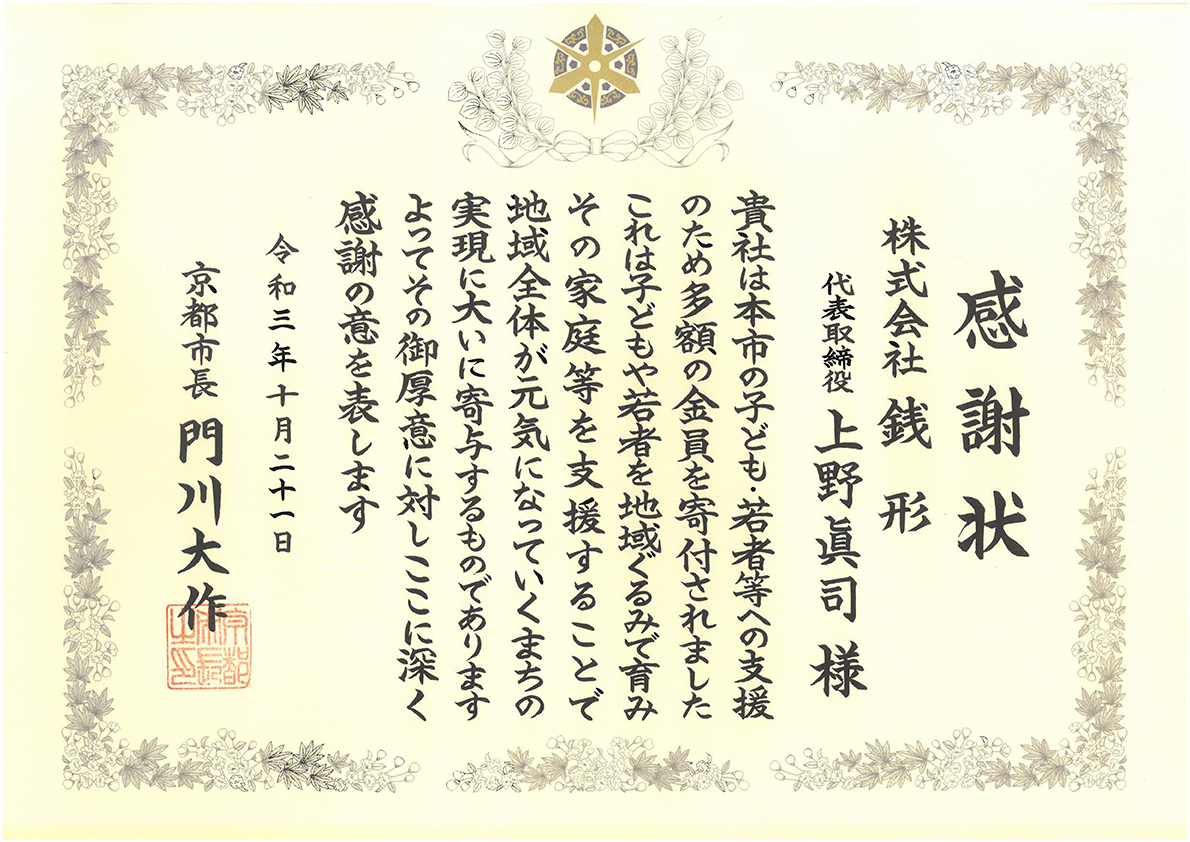 感謝状
株式会社 銭形
代表取締役 上野眞司 様
貴社は本市の子ども・若者等への支援
のため多額の金員を寄付されました
これは子どもや若者を地域ぐるみで育み
その家庭等を支援することで
地域全体が元気になっていくまちの
実現に大いに寄与するものであります
よってその御厚意に対しここに深く
感謝の意を表します
令和三年十月二十一日
京都市長 門川大作
京都市長之印